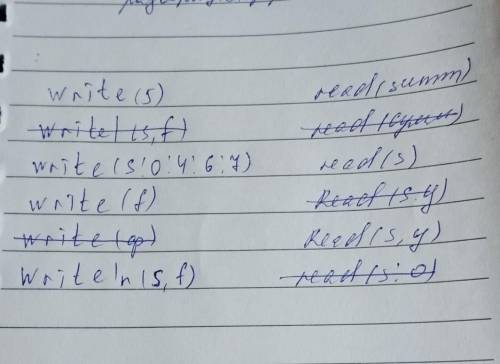 write(s) read(summ)
write1(s,f) read(сумм)
write(s:0:4:6:7) read(s)
write(f) Read(s.y)
write(ф) Read(s,y)
Writeln(s,f) read(s:0)